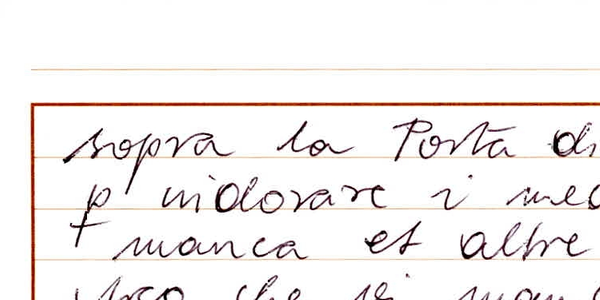 sopra la Porta di
p indorare i med
manca et altre
che vi manc